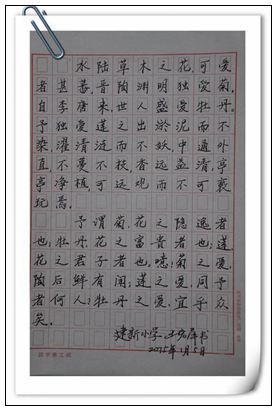 水陸草木之花,可愛
者甚蕃。晋陶淵明獨愛菊。
自李唐來,世人盛愛牡丹。
予獨愛蓮之出淤泥而不
染,濯清漣而不妖,中通外
直,不蔓不枝,香遠益清,亭
亭净植,可遠觀而不可褻
玩焉。
予謂菊,花之隐逸者
也;牡丹,花之富貴者也;蓮,
花之君子者也。噫!菊之愛,
陶后鮮有聞;蓮之愛,同予
者何人?牡丹之愛,宜乎衆
矣。
建新小学 书
2015年1月5日